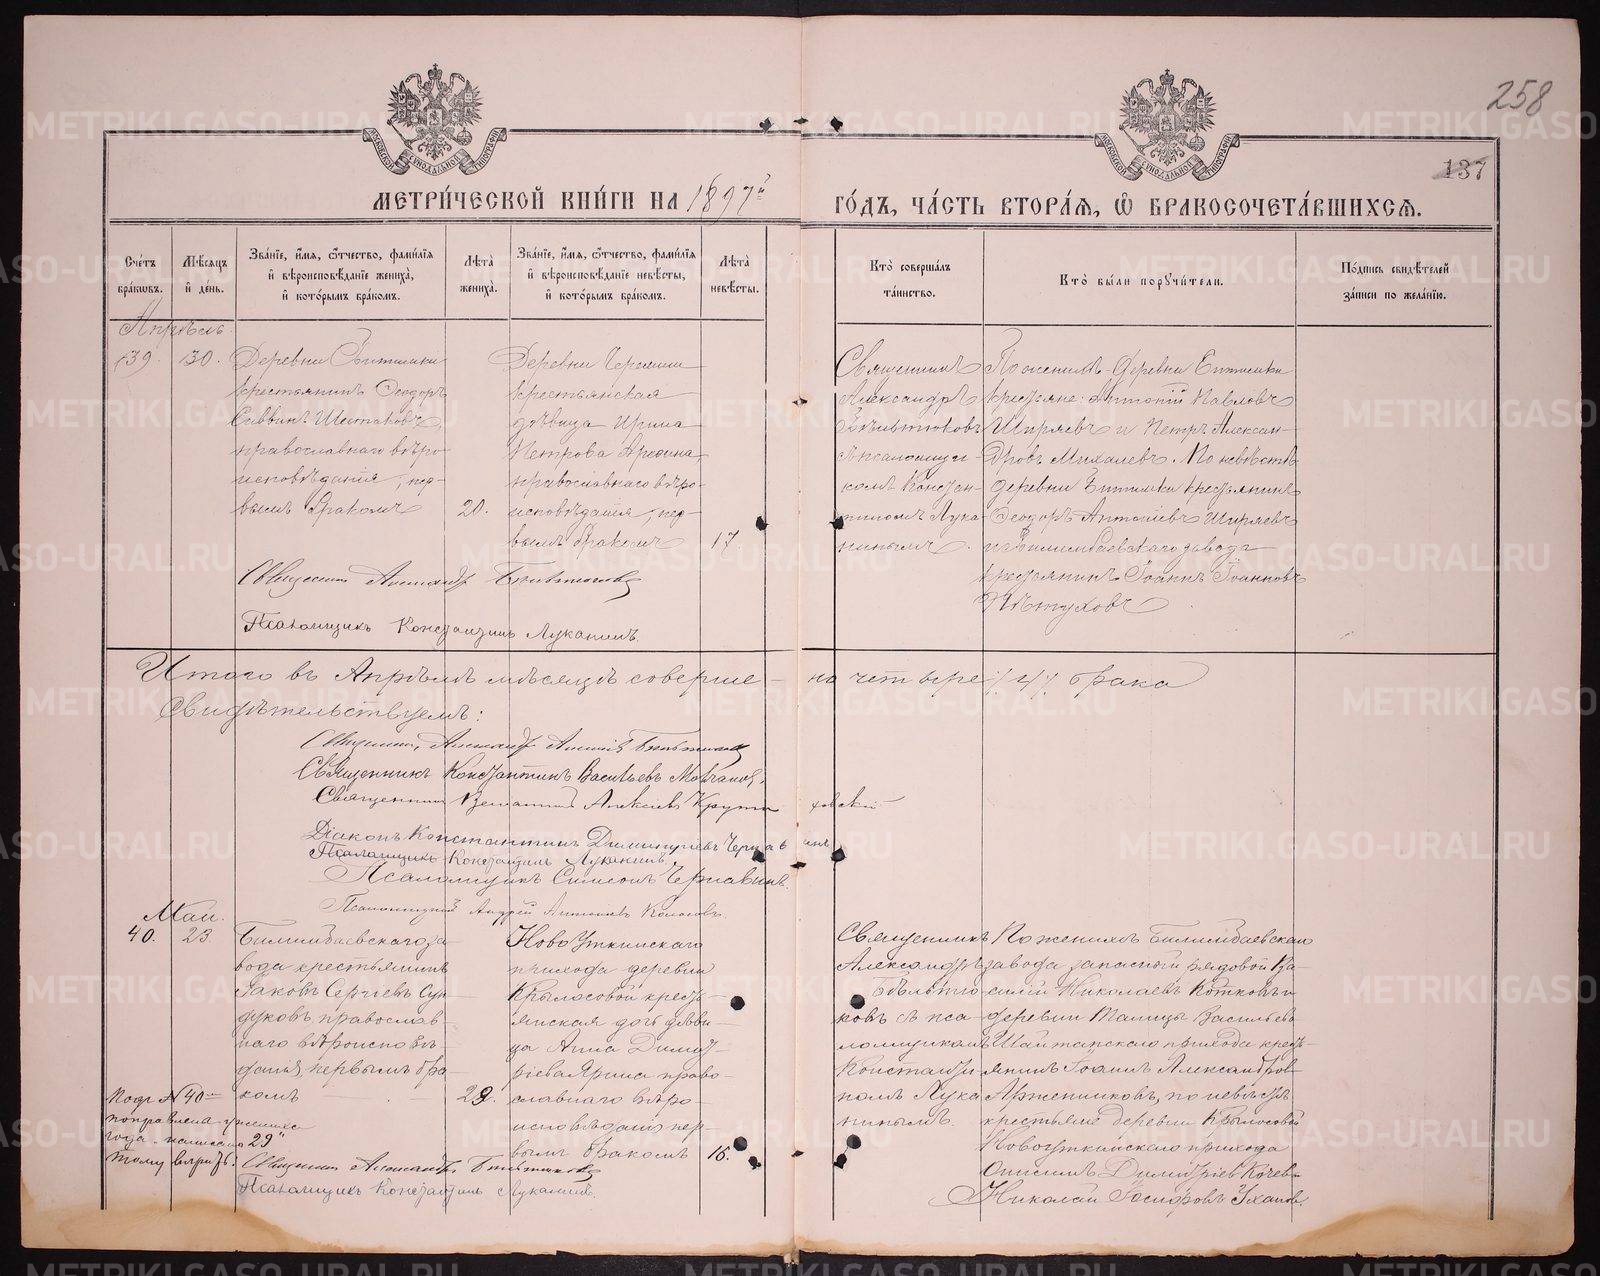 258
137
МОСКОВСКОЙ СѴНОДАЛЬНОЙ ТИПОГРАФІИ
МОСКОВСКОЙ СѴНОДАЛЬНОЙ ТИПОГРАФІИ
МЕТРИ́ЧЕСКОЙ КНИ́ГИ НА 1897й
ГО́ДЪ, ЧА́СТЬ ВТОРА́Я, Ѽ БРАКОСОЧЕТА́ВШИХСЯ.
Сче́тъ
бра́ковъ.
Мѣ́сяцъ
и҆ де́нь.
Зва́нїе, и҆́мя, ѻ҆́тчество, фами́лїя
и҆ вѣроисповѣ́данїе жениха̀,
и҆ кото́рымъ бра́комъ.
Лѣ́та
жениха̀.
Зва́нїе, и҆́мя, ѻ҆́тчество, фами́лїя
и҆ вѣроисповѣ́данїе невѣ́сты,
и҆ кото́рымъ бра́комъ.
Лѣ́та
невѣ́сты.
Кто̀ соверша́лъ
та́инство.
Кто̀ бы́ли порꙋчи́тели.
По́дпись свидѣ́телей
за́писи по жела́нїю.
Апрѣль.
39.
30.
Деревни
крестьянинъ Ѳеодоръ
Саввинъ Шестаковъ,
православнаго вѣро-
исповѣданія, пер-
вымъ бракомъ
20.
Деревни
крестьянская
дѣвица Ирина
Петрова
православнаго вѣро-
исповѣданія, пер-
вымъ бракомъ
17
Священникъ
Александръ
съ псаломщи-
комъ Констан-
тиномъ Лука-
нинымъ.
По женихѣ деревни Битимки
крестьяне: Антоній Павловъ
Ширяевъ и Петръ Алексан-
дровъ Михалевъ. По невѣстѣ
деревни Битимки крестьянинъ
Ѳеодоръ Антоніевъ Ширяевъ
и Билимбаевскаго завода
крестьянинъ Іоаннъ Іоанновъ
Пѣтуховъ
Священникъ Александръ
Псаломщикъ Константинъ Луканинъ.
Итого въ Апрѣлѣ мѣсяцѣ соверше-но четыре /4/ брака
Свидѣтельствуемъ:
Священникъ Александръ
Священникъ Константинъ Васильевъ
Священникъ Веніаминъ Алексѣевъ Крутиховскій
Діаконъ Константинъ Димитріевъ Чернавинъ
Псаломщикъ Константинъ Луканинъ,
Псаломщикъ Симеонъ Чернавинъ.
Псаломщикъ Андрей
Май.
40.
23.
Билимбаевскаго за-
вода крестьянинъ
Іаковъ Сергіевъ Сун-
дуковъ православ-
наго вѣроисповѣ-
данія, первымъ бра-
комъ
29.
Ново Уткинскаго
прихода деревни
Крылосовой кресть-
янская дочь дѣви-
ца Анна Димит-
ріева Ярина право-
славнаго вѣро-
исповѣданія пер-
вымъ бракомъ
16.
Священникъ
Александръ
ковъ съ пса-
ломщикомъ
Константи-
номъ Лука
нинымъ.
По женихѣ Билимбаевскаго
завода запасный рядовой Ва-
силій Николаевъ Котковъ и
деревни Талицы Васильево-
Шайтанскаго прихода кресть-
янинъ Іоаннъ Александров
по невѣстѣ
крестьяне деревни Крылосовой
Новоуткинскаго прихода
Димитріевъ
Николай Іосифовъ
Подъ №40
поправлена у жениха
года написано "29"
тому вѣрить:
Священникъ Александръ
Псаломщикъ Константинъ Луканинъ.
METRIKI.GASO-URAL.RU